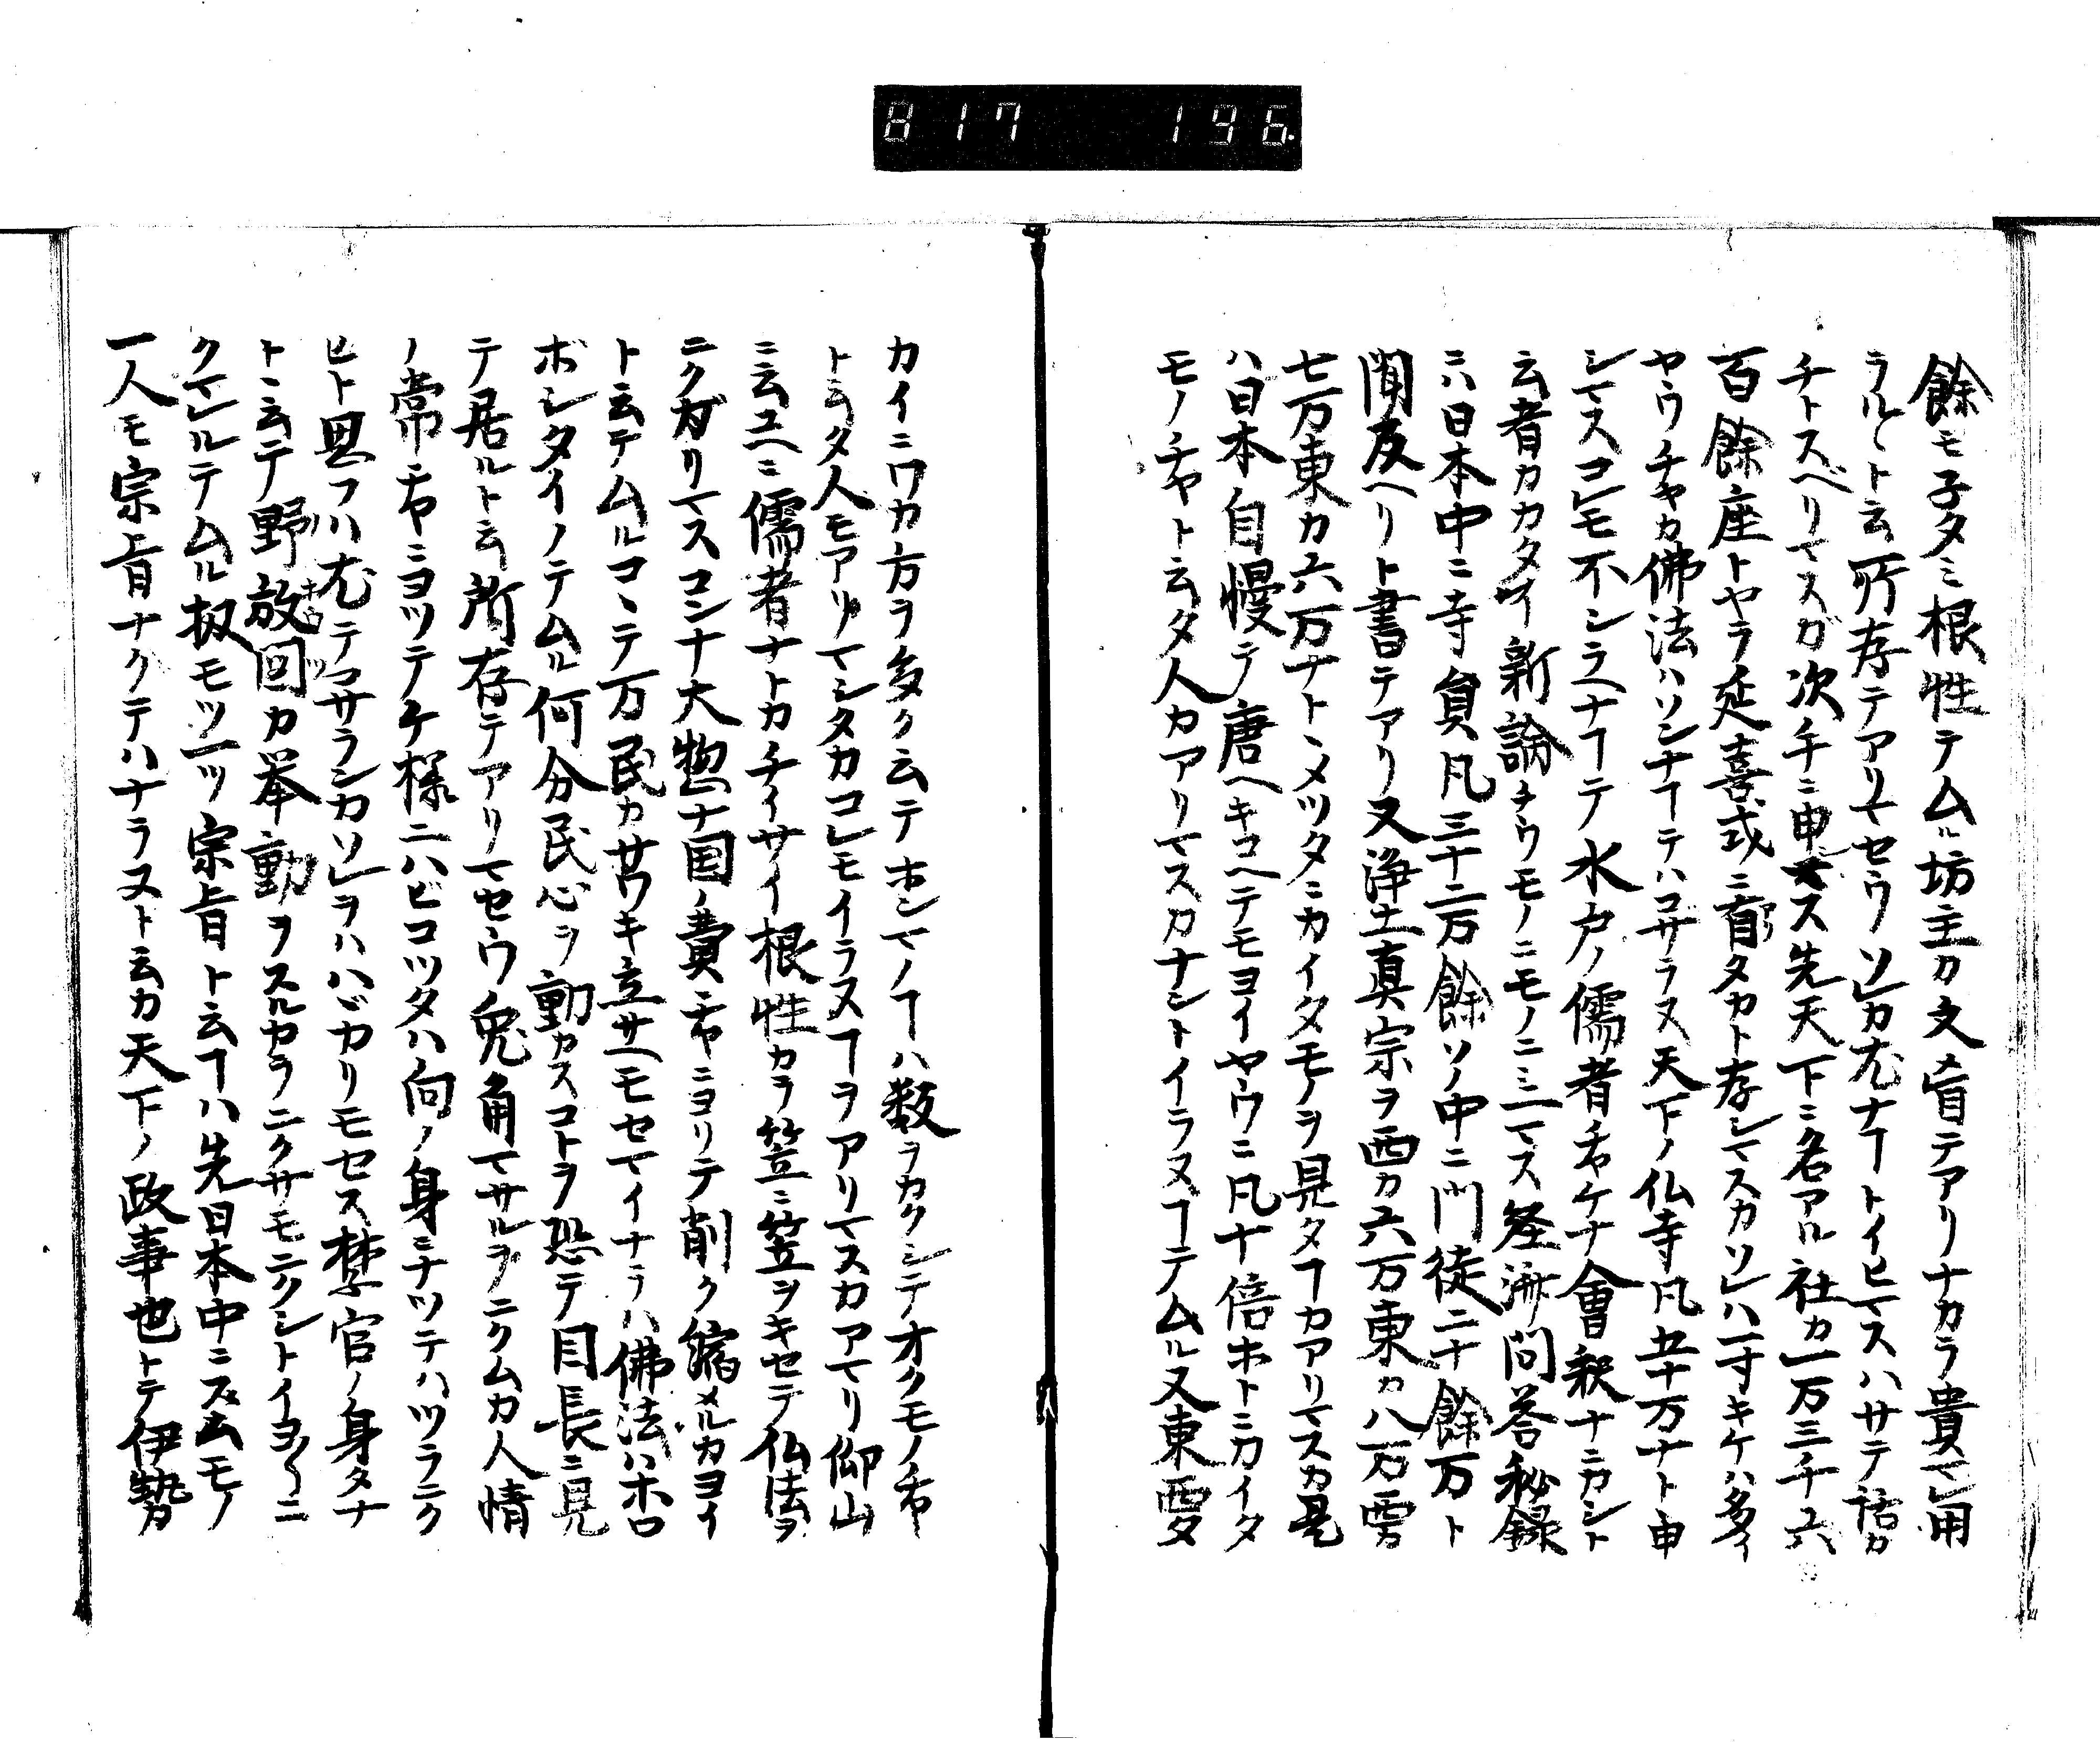 817 196
餘モ子タミ根性テムル坊主カ文盲テアリナカラ貴マレ用
ラルヽト云所存テアリマセウソレカ尤ナヿトイヒマスハサテ話カ
チトスベリマスガ次テニ申マス先天下ニ名アル社カ一万三千六
百餘座トヤラ延喜式ニ有タカト存シマスカソレハ一寸キケハ多イ
ヤウチヤカ佛法ハソンナヿテハコサラヌ天下ノ仏寺凡五十万ナト申
シマスコレモ不シラヘナヿテ水戸ノ儒者チヤケナ會釈ナニカシト
云者カカタイ新論チウモノニモノニミマス経済問荅秘録
ニハ日本中ニ寺員凡三十二万餘ソノ中ニ門徒二十餘万ト
聞及ヘリト書テアリ又浄土真宗ヲ西カ六万東カ八万西カ
七万東カ六万ナトヽメツタニカイタモノヲ見タヿカアリマスカ是
ハ日本自慢テ唐ヘキコヘテモヨイヤウニ凡十倍ホトニカイタ
モノチヤト云タ人カアリマスカナントイラヌヿテムル又東西タ
カイニワカ方ヲ多ク云テホンマノヿハ数ヲカクシテオクモノチヤ
ト云タ人モアリマシタカコレモイラヌヿヲアリマスカアマリ仰山
ニ云ユヘニ儒者ナトカチイサイ根性カラ笠ニ笠ヲキセテ仏法ヲ
ニクガリマスコンナ大惣ナ国ノ費チヤニヨリテ削ク縮メルカヨイ
ト云テムルコヽテ万民カサワキ立サヘモセマイナラハ佛法ハホロ
ボシタイノテムル何分民心ヲ動カスコトヲ恐テ目長ニ見
テ居ルト云所存テアリマセウ兎角マサルヲニクムカ人情
ノ常チヤニヨツテケ様ニハビコツタハ向ノ身ニナツテハツラニク
ヒト思フハ尤テコサラシカソレヲハハヾカリモセス禁官ノ身タナ
トヽ云テ野放回カ挙動ヲスルカラニクサモニクシトイヨ〳〵ニ
クマレルテムル扨モツ一ツ宗旨ト云ヿハ先日本中ニスムモノ
一人モ宗旨ナクテハナラヌト云カ天下ノ政事也トテ伊勢カ